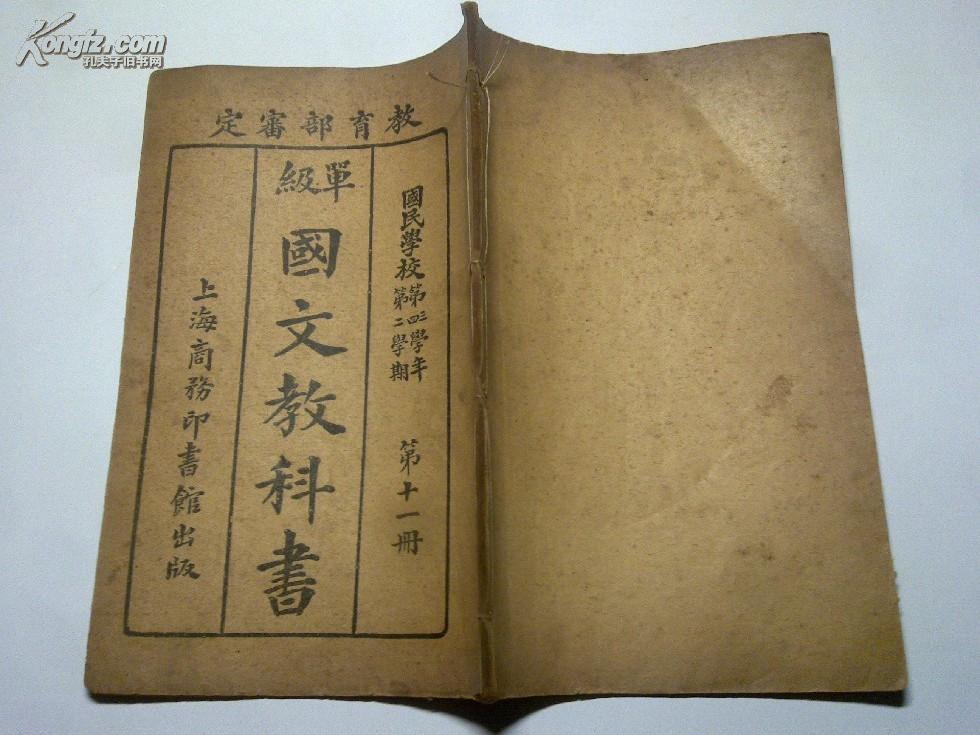 Kongfz.com
孔夫子旧书网
教育部審定
國民學校第三四學年第二學期 第十一冊
單級
國文教科書
上海商務印書館出版